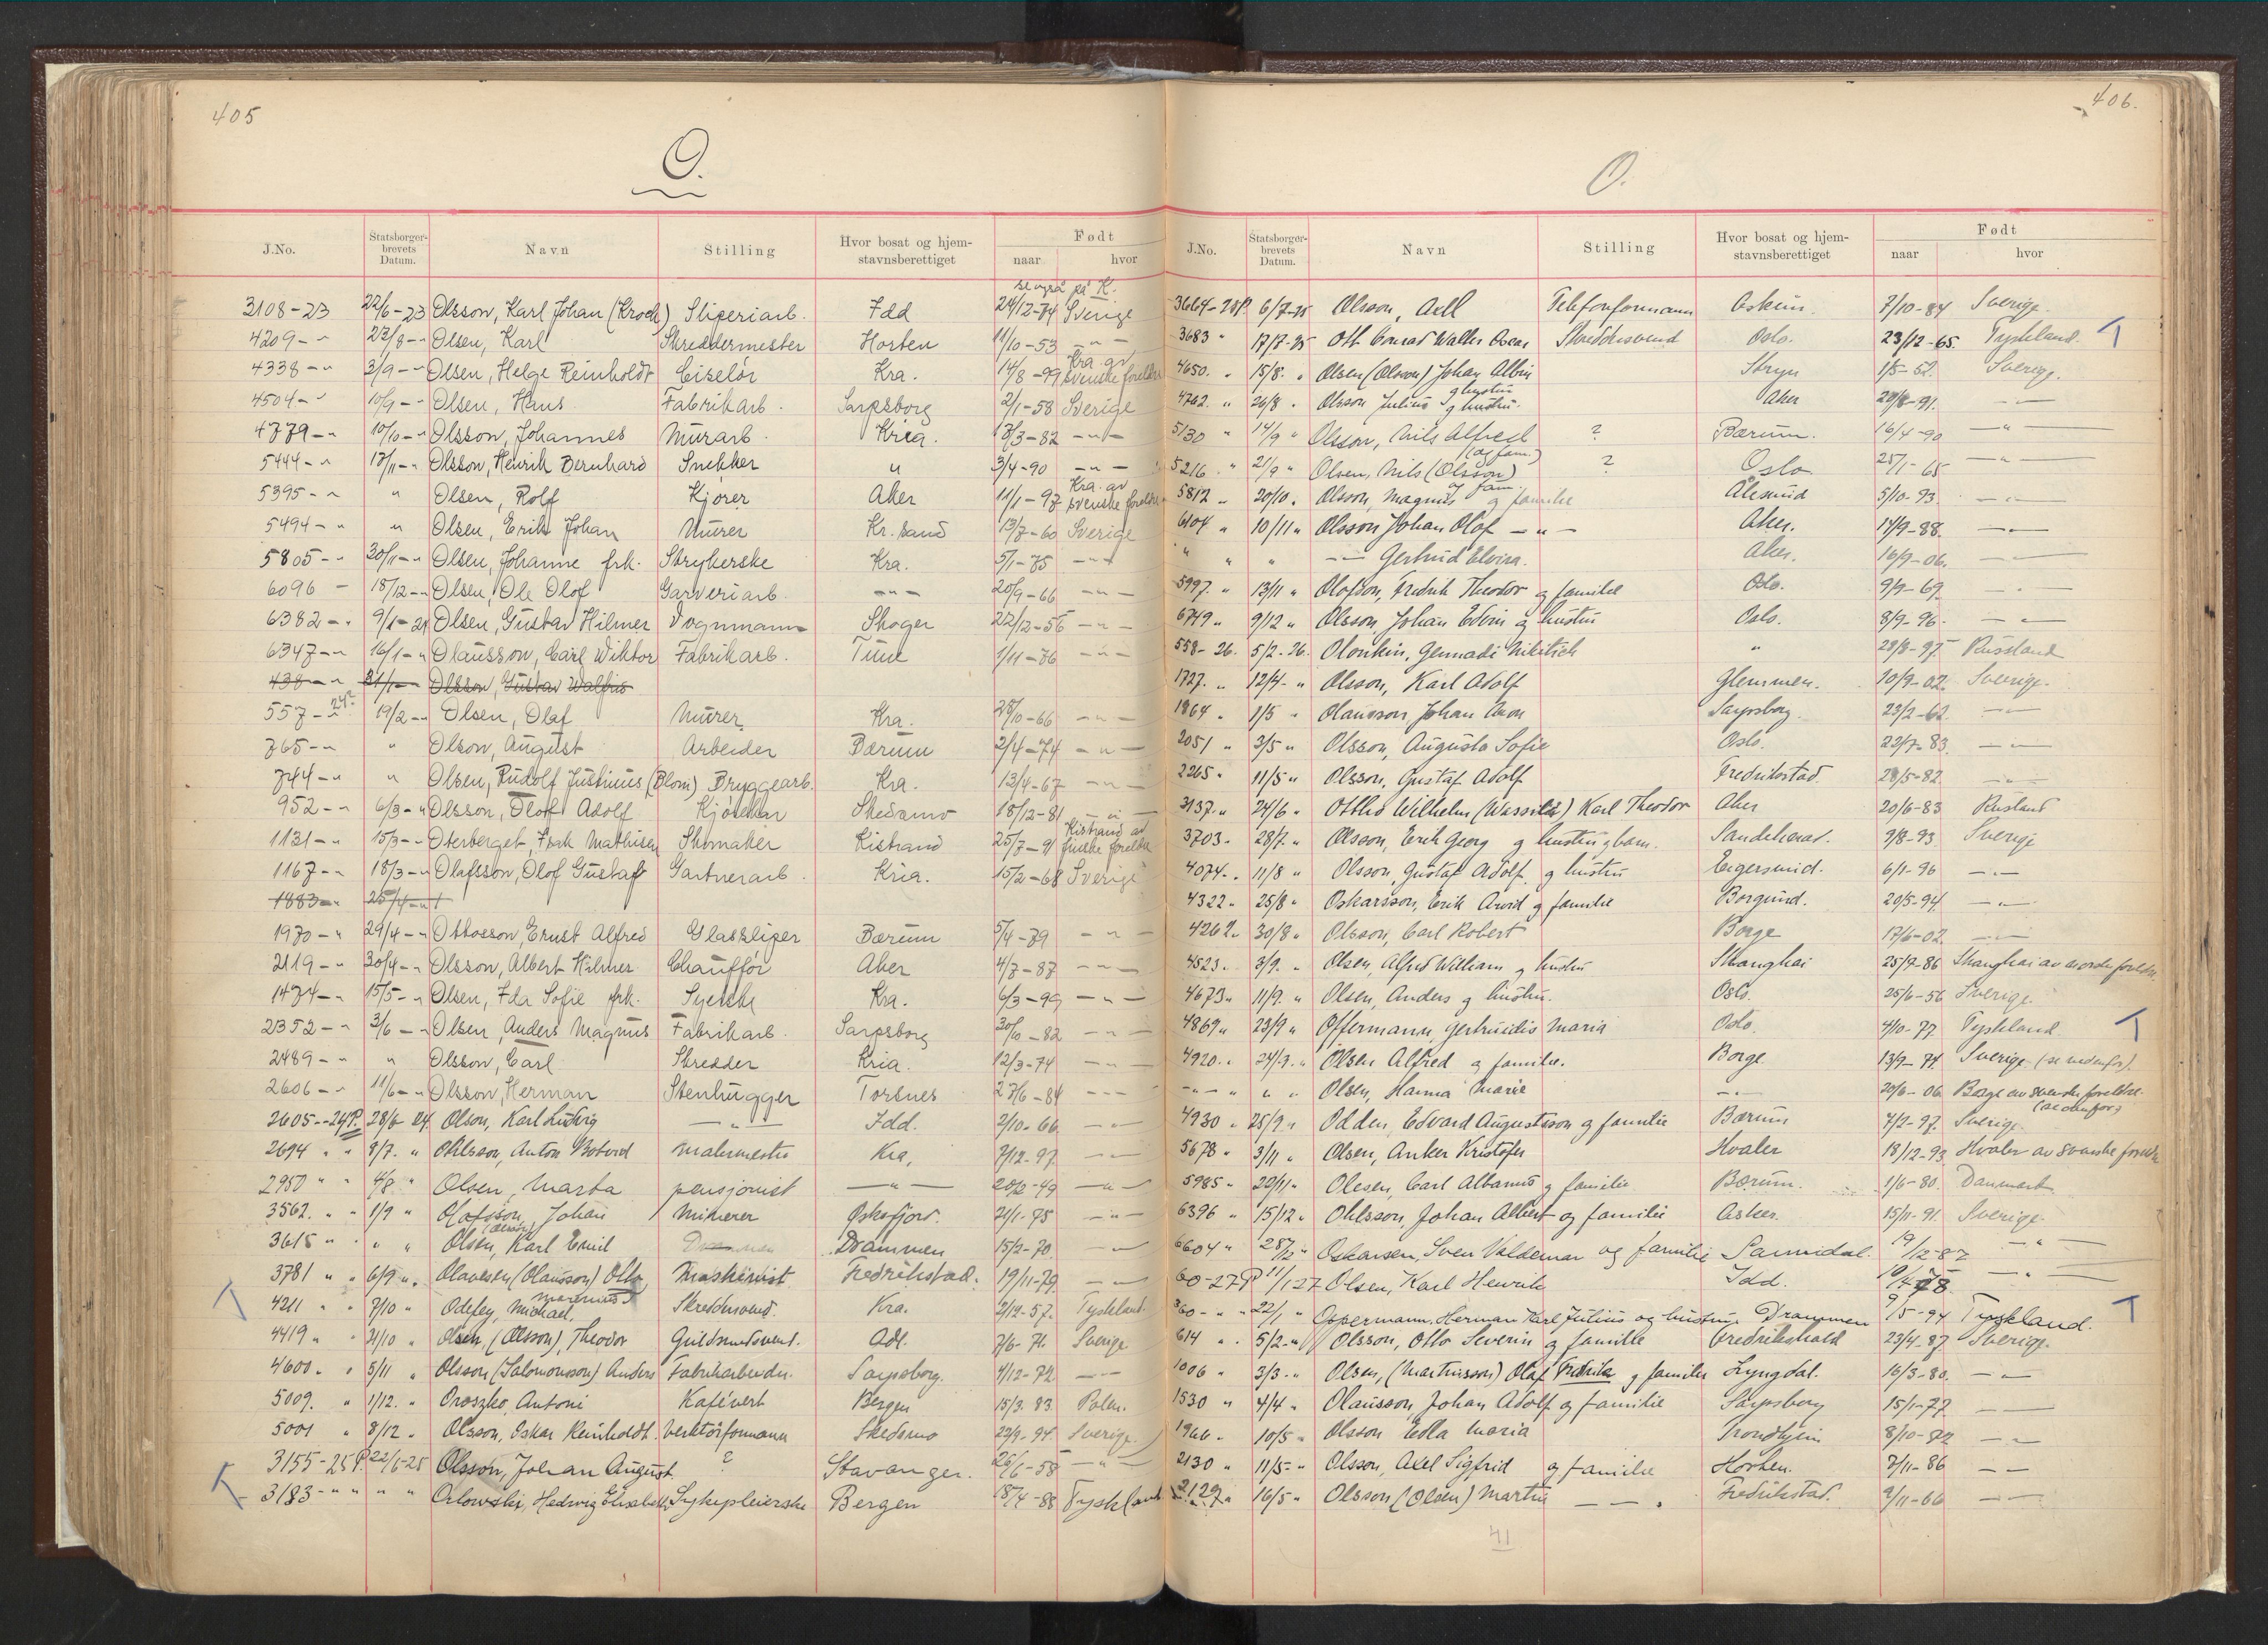 405
O.
J.No. Statsborgerbrevets Datum. Navn Stilling Hvor bosat og hjemstavnsberettiget Født naar hvor
se også på K.
3108-23 22/6-23 Olsson, Karl Johan (Krock) Sliperiarb. Idd 24/12-74 Sverige
4209-" 23/8-" Olsen, Karl Skreddermester Horten 11/10-53 -"-
4338-" 3/9-" Olsen, Helge Reinholdt Ciselør Kra. 14/8-99 Kra. av svenske foreldre
4504-" 10/9-" Olsen, Hans Fabrikarb. Sarpsborg 2/1-58 Sverige
4779-" 10/10-" Olsson, Johannes Murarb. Kria. 13/3-82 -"-
5444-" 13/11-" Olsson, Henrik Bernhard Snekker " 3/4-90 -"-
5395-" " Olsen, Rolf Kjører Aker 11/1-97 Kra. av svenske foreldre
5494-" " Olsen, Erik Johan Murer Kr.sand 13/7-60 Sverige
5805-" 30/11-" Olsen, Johanne frk. Strykerske Kra. 5/1-75 -"-
6096 - 18/12-" Olsen, Ole Olof Garveriarb. -"- 20/9-66 -"-
6382-" 9/1-24 Olsen, Gustav Hilmer Vognmann Skoger 22/12-56 -"-
6347-" 16/1-" Olausson, Carl Wiktor Fabrikarb. Tune 1/11-76 -"-
438-" 31/1-" Olsson, Gustav Walfrid
557-24P. 19/2-" Olsen, Olaf Murer Kra. 28/10-66 -"-
765-" " Olson, August Arbeider Bærum 2/4-74 -"-
744-" " Olsen, Rudolf Justinius (Blom) Bryggearb. Kra. 13/4-67 -"-
952-" 6/3-" Olsson, Olof Adolf Skedsmo 18/12-81 -"-
1131-" 15/3-" Oterberget, Isak Mathisen Skomaker Kistrand 25/7-91 Kistrand av finske foreldre
1167-" 18/3-" Olafsson, Olof Gustaf Gartnerarb. Kria. 15/2-68 Sverige
1883-" 25/4-"
1970-" 29/4-" Ottosson, Ernst Alfred Glassliper Bærum 5/4-79 -"-
2119-" 30/4-" Olsson, Albert Hilmer Chauffør Aker 4/7-87 -"-
1474-" 15/5-" Olsen, Ida Sofie frk. Syerske Kra. 6/3-99 -"-
2352-" 3/6-" Olsen, Anders Magnus Fabrikarb. Sarpsborg 30/10-82 -"-
2489-" " Olsson, Carl Skredder Kria. 12/3-74 -"-
2606-" 11/6-" Olsson, Herman Stenhugger Torsnes 27/6-84 -"-
2605-24P. 28/6 24. Olson, Karl Ludvig -"- Idd. 2/10-66 -"-
2694 " " 8/7. " Ohlsson, Anton Malermester Kra. 7/12-97 -"-
2950 " " 4/8 " Olsen, Marta pensjonist -"- 20/2-49 -"-
3562. " " 1/9 " Olofsson, Johan Minerer Oksfjord. 21/1-75 -"-
3615 " " " " Olsen, (Olsson) Karl Emil Drammen 15/2-70. -"-
3781 " " 6/9 " Olavesen (Olausson) Otto, Marenius Maskinist Fredrikstad. 19/11-79. -"-
4211 " " 7/10 " Odefey, Michael, Skreddersvend. Kra. 2/12-57. Tyskland.
4419 " " 21/10 " Olsen (Olsson), Theodor Guldsmedsvend. Adl. 7/6-71. Sverige
4600. " 5/11 " Olsson (Salomonsson) Anders Fabrikarbeider. Sarpsborg. 4/12-72 -"-
5009. " 1/12. " Oroszko, Antoni Kafévert Bergen 15/3.83. Polen.
5001 " 8/12. " Olsson, Oskar Reinholdt. Verktøiformann Skedsmo 22/9-94 Sverige.
3155-25P. 22/6-25 Olsson, Johan August. ? Stavanger. 26/6-58 -"-
3183-" " " " Orlowski, Hedwig Elisabeth, Sykepleierske Bergen 18/4-88 Tyskland
406.
O.
J.No. Statsborgerbrevets Datum. Navn Stilling Hvor bosat og hjemstavnsberettiget Født naar hvor
3664-25P. 6/7-25 Olsson, Axel Telefonformann Askim. 7/10-84 Sverige.
3683 " 17/7-25 Ott Conrad Walter Oscar Skreddersvend Oslo. 23/12-65. Tyskland. T
4650. " 15/8. " Olsen (Olsson) Johan Albin Stryn 1/5-52. Sverige.
4762. " 26/8 " Olsson Julius og hustru. Aker 29/8-91. -"-
5130 " 14/9 " Olsson, Nils Alfred (og fam.) ? Bærum. 16/4-90 -"-
5216 " 21/9 " Olsen, Nils (Olsson) og fam. ? Oslo 25/1-65 -"-
5812 " 20/10. Olsson, Magnus og familie Ålesund 5/10-93. -"-
6104 " 10/11 " Olsson Johan Olof -"- Aker. 14/9-88. -"-
" " -"- Gertrud Elvira. Aker. 16/9-06. -"-
5997. " 13/11 " Olofson, Fredrik Theodor og familie Oslo. 9/9-69. -"-
6749 " 9/12 " Olsson Johan Edvin og hustru Oslo. 8/9-96. -"-
558-26. 5/2-26. Olonkin, Gennadi Nikitich " 29/8-97. Russland
1727. " 12/4-" Olsson, Karl Adolf Glemmen. 10/9-02. Sverige.
1864 " 1/5 " Olausson, Johan Aron Sarpsborg. 23/2-62. -"-
2051 " 3/5 " Olsson, Augusta Sofie Oslo. 22/7-83. -"-
2265 " 11/5 " Olsson, Gustaf Adolf Fredrikstad. 28/5-82. -"-
3137. " 24/6 " Ottho Wilhelm (Wassili) Karl Theodor Aker 20/6-83 Rusland
3703. 28/7. " Olsson, Erik Georg og hustru og barn. Sandeherad. 9/8-93. Sverige
4074. " 11/8 " Olsson, Gustaf Adolf. og hustru Eigersund. 6/1-96 -"-
4322 " 25/8 " Oskarsson, Erik Arvid og familie Borgund. 20/5-94. -"-
4262. " 30/8 " Olsson, Carl Robert Borge 17/6-02. -"-
4523. " 3/9. " Olsen, Alfred William og hustru Shanghai 25/9-86 Shanghai av norske foreldre.
4673 " 11/9. " Olsen, Anders og hustru. Oslo. 25/6-56 Sverige.
4869 " 23/9 " Offermann, Gertruidis Maria Oslo. 4/10-77. Tyskland T
4920. " 24/9. " Olsen Alfred og familie. Borge 13/9-74. Sverige (se nedenfor).
-"- " " " Olsen, Hanna Marie -"- 20/6-06. Borge av svenske foreldre. (se ovenfor)
4930 " 25/9 " Odden, Edvard Augustsson og familie Bærum 7/2-97. Sverige.
5678 " 3/11 " Olsen, Anker Kristofer Hvaler 18/12-93. Hvaler av svenske foreldre
5985 " 22/11 " Olesen, Carl Albanus og familie Bærum. 1/6-80. Danmark
6396 " 15/12 " Ohlsson, Johan Albert og familie Asker. 15/11-91. Sverige.
6604 " 28/12 " Oskarsen, Sven Valdemar og familie Sannidal. 19/12-87 -"-
60-27P 11/1 27 Olsen, Karl Henrik Idd. 10/4-78. -"-
360-" " 22/1 " Oppermann, Herman Karl Julius og hustru Drammen 9/5-94 Tyskland. T
614 " 5/2-" Olsson, Otto Severin og familie Fredrikshald 23/4-87 Sverige.
1006 " 3/3-" Olsen, (Martinsson) Olaf Fredrik og familie Lyngdal. 16/3-80. -"-
1530 " 4/4 " Olausson, Johan Adolf og familie Sarpsborg 15/1-77 -"-
1966. " 10/5 " Olsson Edla Maria Trondhjem 8/10-82 -"-
2130 " 11/5-" Olsson, Axel Sigfrid og familie Horten. 7/11-86 -"-
2129. " 16/5 " Olsson (Olsen) Martin -"- Fredrikstad. 9/11-66 -"-
41